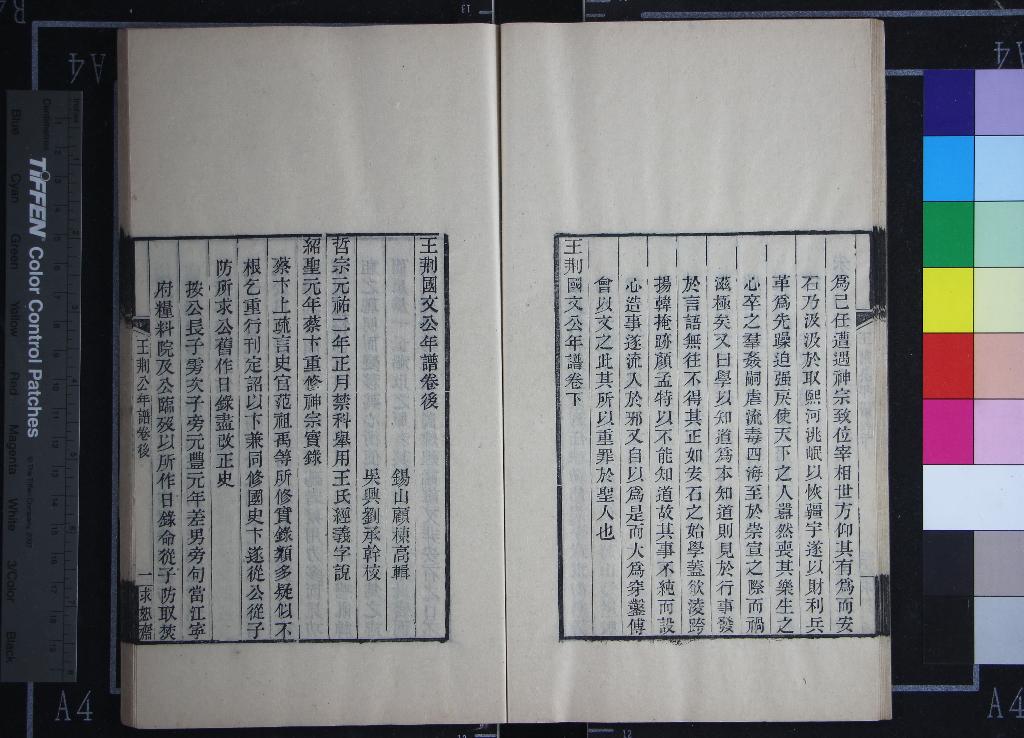 爲己任遭遇神宗致位宰相世方仰其有爲而安
石乃汲汲於取熙河洮岷以恢疆宇遂以財利兵
革爲先躁迫强戾使天下之人囂然喪其樂生之
心卒之羣姦嗣虐流毒四海至於崇宣之際而禍
滋極矣又曰學以知道爲本知道則見於行事發
於言語無往不得其正如安石之始學蓋欲淩跨
揚韓掩跡顔孟特以不能知道故其事不純而設
心造事遂流入於邪又自以爲是而大爲穿鑿傅
會以文之此其所以重罪於聖人也
王荆國文公年譜卷下
王荆國文公年譜卷後
錫山顧棟高輯
吳興劉承幹校
哲宗元祐二年正月禁科舉用王氏經義字說
紹聖元年蔡卞重修神宗實錄
蔡卞上疏言史官范祖禹等所修實錄類多疑似不
根乞重行刊定詔以卞兼同修國史卞遂從公從子
防所求公舊作日錄盡改正史
按公長子雱次子旁元豐元年差男旁句當江寧
府糧料院及公臨歿以所作日錄命從子防取焚
王荆公年譜卷後
一
求恕齋
TIFFEN Color Control Patches
Blue
Cyan
Green
Yellow
Red
Magenta
White
3/Color
Black
Centimetres
A4
A4
A4
A4